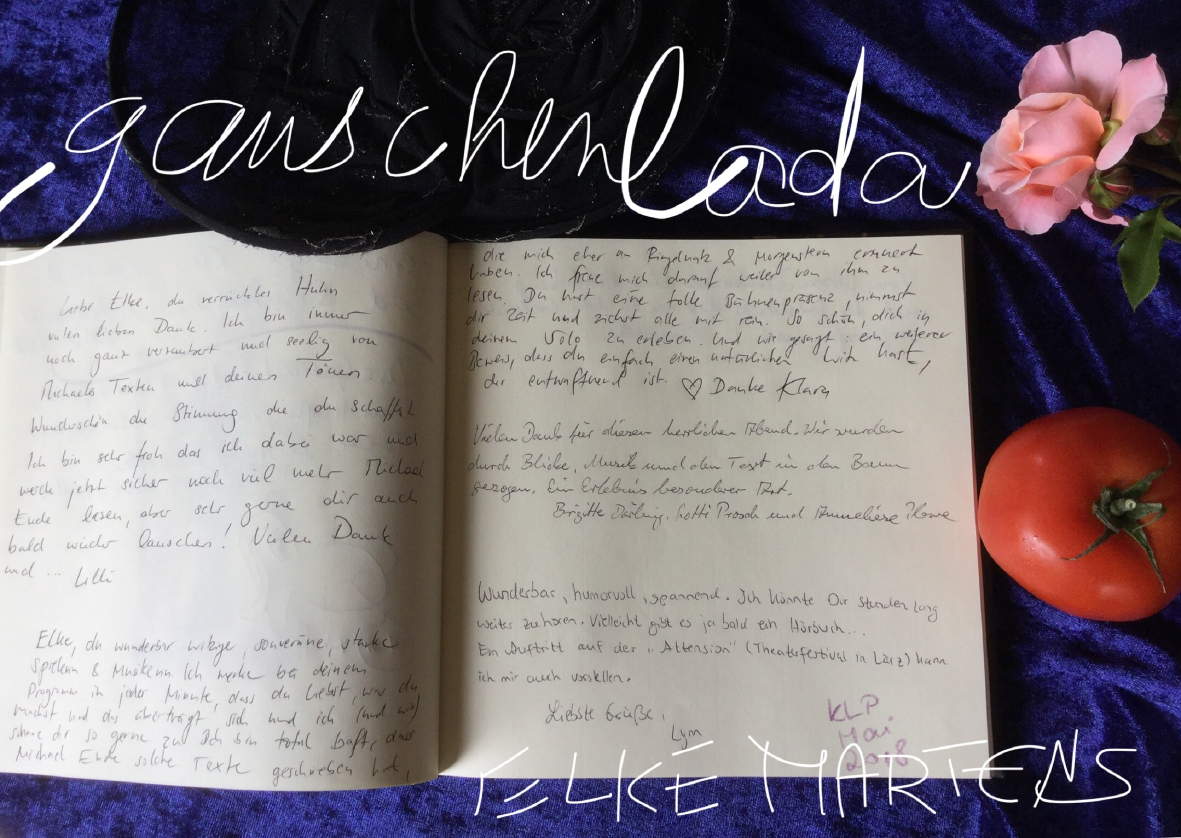 gauschenlada
Liebe Elke, du verrücktes Huhn
vielen lieben Dank. Ich bin immer
noch ganz verzaubert und seelig von
Michaels Texten und deinen Tönen
Wunderschön die Stimmung die du schaffst
Ich bin sehr froh das ich dabei war und
werde jetzt sicher noch viel mehr Michael
Ende lesen, aber sehr gerne dir auch
bald wieder lauschen! Vielen Dank
und ... Lilli
Elke, du wunderbar witzige, souveräne, starke
Spielerin & Musikerin Ich merke bei deinem
Programm in jeder Minute, dass du liebst, was du
machst und das überträgt sich und ich (und wir)
schaue dir so gerne zu Ich bin total baff, dass
Michael Ende solche Texte geschrieben hat,
die mich eher an Ringelnatz & Morgenstern erinnert
haben. Ich freue mich darauf weiter von ihm zu
lesen. Du hast eine tolle Bühnenpräsenz, nimmst
dir Zeit und ziehst alle mit rein. So schön, dich in
deinem Solo zu erleben. Und wie gesagt: ein weiterer
Beweis, dass du einfach einen natürlichen Witz hast,
der entwaffnend ist. ♡ Danke Klara
Vielen Dank für diesen herrlichen Abend. Wir wurden
durch Blicke, Musik und den Text in den Bann
gezogen. Ein Erlebnis besonderer Art.
Brigitte Lotti und Anneliese
Wunderbar, humorvoll, spannend. Ich könnte Dir stunden lang
weiter zuhören. Vielleicht gibt es ja bald ein Hörbuch...
Ein Auftritt auf der "Attension" (Theaterfestival in Lärz) kann
ich mir auch vorstellen.
Liebste Grüße,
Lyn
KLP
Mai
2018
ELKE MARTENS